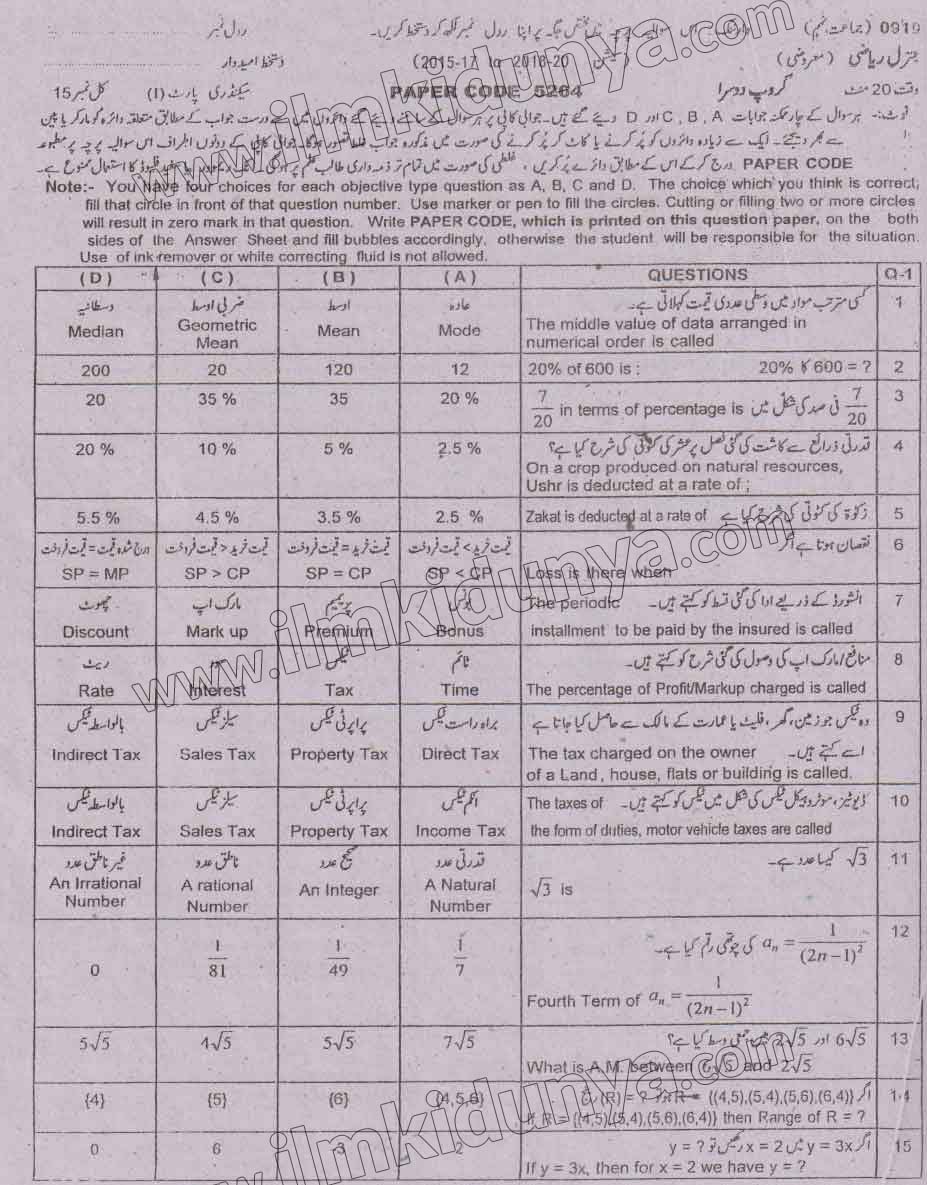 0919 (جماعت نہم) وارننگ: اس سوالیہ پرچہ پر اپنا رول نمبر لکھ کر دستخط کریں۔ رول نمبر
جنرل ریاضی (معروضی) (سیشن 2015-17 to 2018-20) دستخط امیدوار
وقت 20 منٹ گروپ دوسرا PAPER CODE 5264 سیکنڈری پارٹ (I) کل نمبر 15
نوٹ:- ہر سوال کے چار ممکنہ جوابات A ، B ، C اور D دیئے گئے ہیں۔ جوابی کاپی پر ہر سوال کے سامنے دیئے گئے دائروں میں سے درست جواب کے مطابق متعلقہ دائرہ کو مارکر یا پین
سے بھر دیجئے۔ ایک سے زیادہ دائروں کو پُر کرنے یا کاٹ کر پُر کرنے کی صورت میں مذکورہ جواب غلط تصور ہوگا۔ جوابی کاپی کے دونوں اطراف اس سوالیہ پرچہ پر مطبوعہ
PAPER CODE درج کرکے اس کے مطابق دائرے پُر کریں، غلطی کی صورت میں تمام تر ذمہ داری طالب علم پر ہوگی۔ کا استعمال ممنوع ہے۔
Note:- You have four choices for each objective type question as A, B, C and D. The choice which you think is correct,
fill that circle in front of that question number. Use marker or pen to fill the circles. Cutting or filling two or more circles
will result in zero mark in that question. Write PAPER CODE, which is printed on this question paper, on the both
sides of the Answer Sheet and fill bubbles accordingly, otherwise the student will be responsible for the situation.
Use of ink remover or white correcting fluid is not allowed.
(D) (C) (B) (A) QUESTIONS Q-1
وسطانیہ ضربی اوسط اوسط عادہ کسی مرتب مواد میں وسطی عددی قیمت کہلاتی ہے۔ 1
Median Geometric Mean Mean Mode The middle value of data arranged in
numerical order is called
200 20 120 12 20% of 600 is : 20% کا 600 = ? 2
20 35 % 35 20 % 7/20 in terms of percentage is 7/20 فی صد کی شکل میں 3
20 % 10 % 5 % 2.5 % قدرتی ذرائع سے کاشت کی گئی فصل پر عشر کی کٹوتی کی شرح کیا ہے؟ 4
On a crop produced on natural resources,
Ushr is deducted at a rate of ;
5.5 % 4.5 % 3.5 % 2.5 % Zakat is deducted at a rate of زکوٰۃ کی کٹوتی کی شرح کیا ہے 5
درج شدہ قیمت = قیمت فروخت قیمت خرید > قیمت فروخت قیمت خرید = قیمت فروخت قیمت خرید < قیمت فروخت نقصان ہوتا ہے اگر 6
SP = MP SP > CP SP = CP SP < CP Loss is there when
چھوٹ مارک اپ پریمیم بونس The periodic انشورڈ کے ذریعے ادا کی گئی قسط کو کہتے ہیں۔ 7
Discount Mark up Premium Bonus installment to be paid by the insured is called
ریٹ سود ٹیکس ٹائم منافع/مارک اپ کی وصول کی گئی شرح کو کہتے ہیں۔ 8
Rate Interest Tax Time The percentage of Profit/Markup charged is called
بالواسطہ ٹیکس سیلز ٹیکس پراپرٹی ٹیکس براہ راست ٹیکس وہ ٹیکس جو زمین، گھر، فلیٹ یا عمارت کے مالک سے حاصل کیا جاتا ہے 9
Indirect Tax Sales Tax Property Tax Direct Tax The tax charged on the owner اسے کہتے ہیں۔
of a Land, house, flats or building is called.
بالواسطہ ٹیکس سیلز ٹیکس پراپرٹی ٹیکس انکم ٹیکس The taxes of ڈیوٹیز، موٹر وہیکل ٹیکس کی شکل میں ٹیکس کو کہتے ہیں۔ 10
Indirect Tax Sales Tax Property Tax Income Tax the form of duties, motor vehicle taxes are called
غیر ناطق عدد ناطق عدد صحیح عدد قدرتی عدد √3 کیسا عدد ہے۔ 11
An Irrational Number A rational Number An Integer A Natural Number √3 is
0 1/81 1/49 1/7 aₙ = 1/(2n−1)² کی چوتھی رقم کیا ہے۔ 12
Fourth Term of aₙ = 1/(2n−1)²
5√5 4√5 5√5 7√5 6√5 اور 2√5 میں جمعی وسط کیا ہے؟ 13
What is A.M. between 6√5 and 2√5
{4} {5} {6} {4,5,6} اگر R = {(4,5),(5,4),(5,6),(6,4)} (R) = ? 14
If R = {(4,5),(5,4),(5,6),(6,4)} then Range of R = ?
0 6 3 2 اگر y = 3x میں x = 2 رکھیں تو y = ? 15
If y = 3x, then for x = 2 we have y = ?
www.ilmkidunya.com
www.ilmkidunya.com
www.ilmkidunya.com